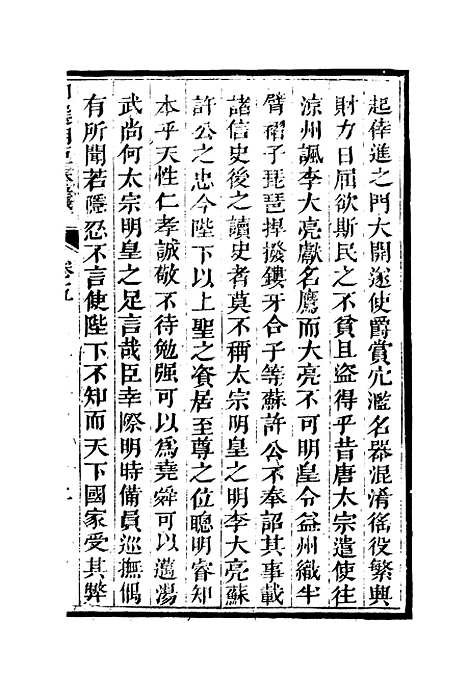 起倖進之門大開遂使爵賞宂濫名器混淆徭役繁興
財力日屈欲斯民之不貧且盜得乎昔唐太宗遣使往
涼州諷李大亮獻名鷹而大亮不可明皇令益州織半
臂褶子琵琶捍撥鏤牙合子等蘇許公不奉詔其事載
諸信史後之讀史者莫不稱太宗明皇之明李大亮蘇
許公之忠今陛下以上聖之資居至尊之位聰明睿知
本乎天性仁孝誠敬不待勉强可以爲堯舜可以邁湯
武尚何太宗明皇之足言哉臣幸際明時備員巡撫偶
有所聞若隱忍不言使陛下不知而天下國家受其弊
卷之五